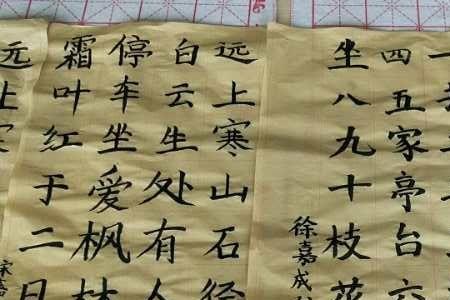 一
四五家亭台六
坐八九十枝花
徐嘉成
远上寒山石径
白云生处有人
停车坐爱枫林
霜叶红于二月